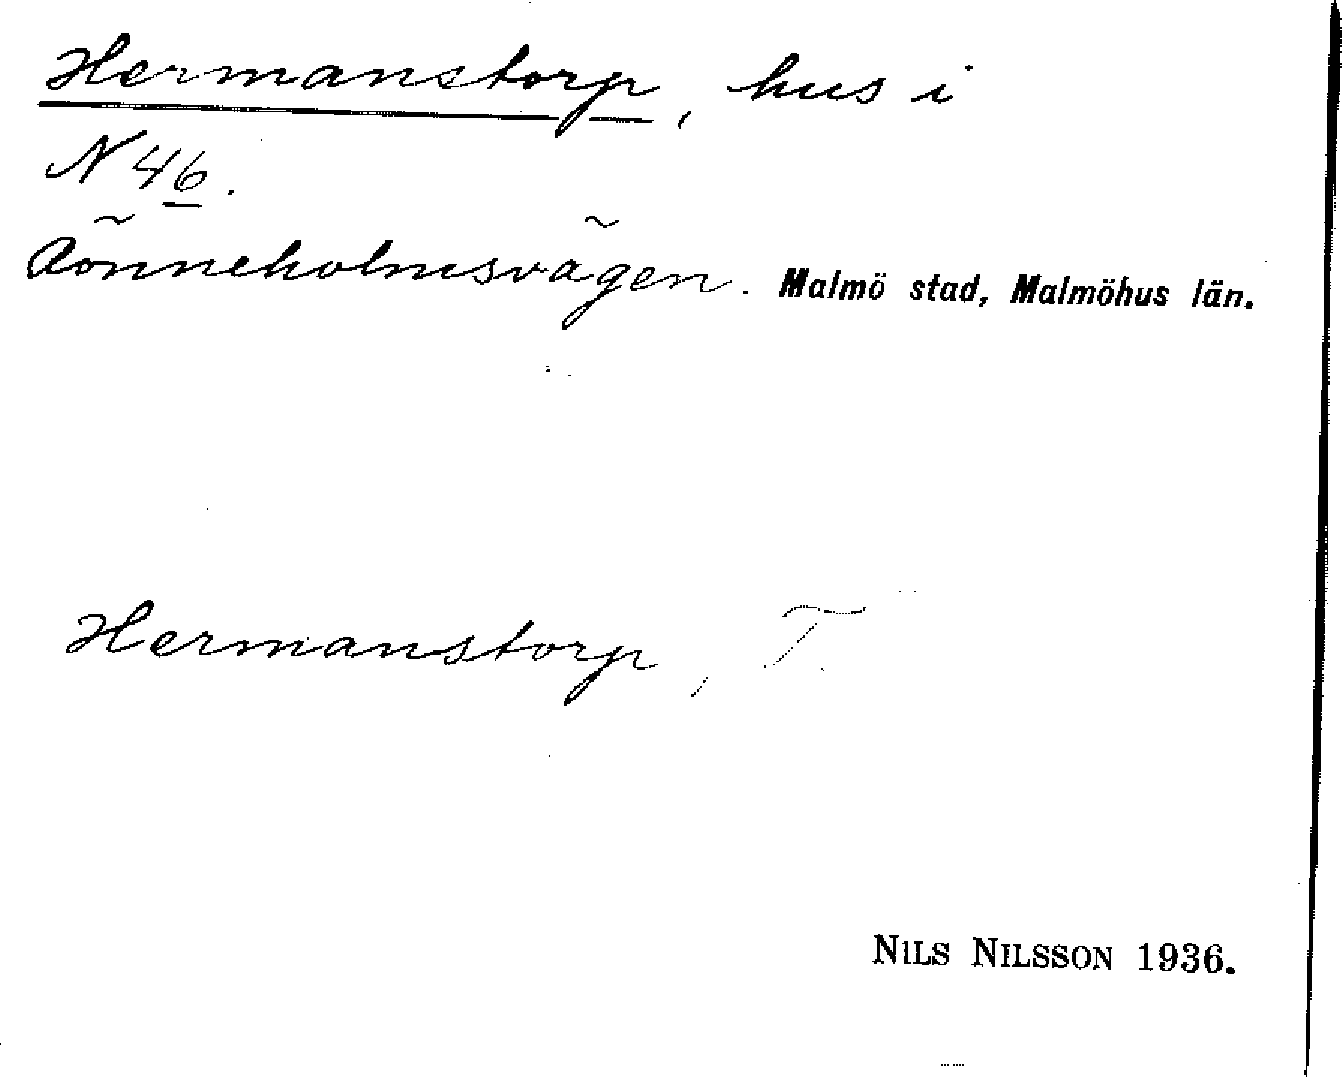 Hermanstorp, hus i
N 46.
Rönneholmsvägen. Malmö stad, Malmöhus län.
Hermanstorp, T.
NILS NILSSON 1936.